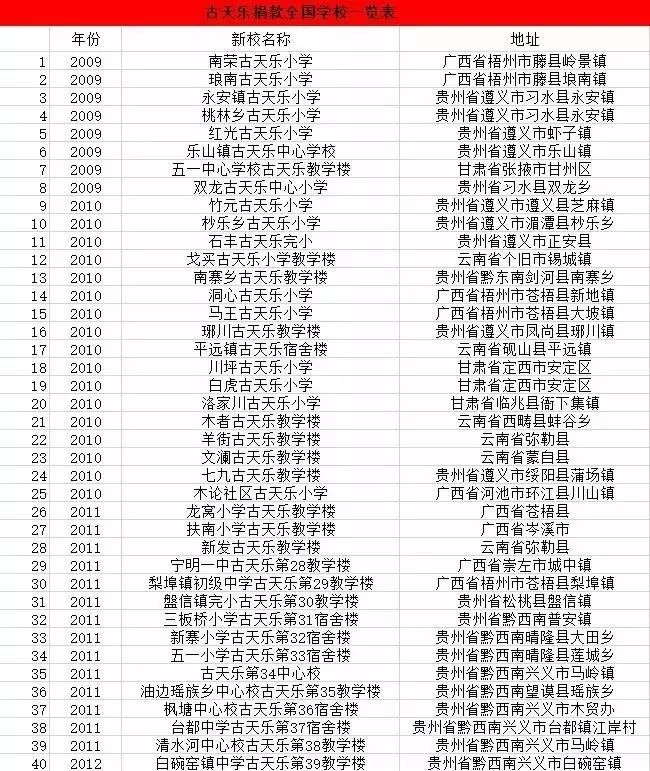 古天乐捐款全国学校一览表
年份 新校名称 地址
1 2009 南荣古天乐小学 广西省梧州市藤县岭景镇
2 2009 琅南古天乐小学 广西省梧州市藤县埌南镇
3 2009 永安镇古天乐小学 贵州省遵义市习水县永安镇
4 2009 桃林乡古天乐小学 贵州省遵义市习水县永安镇
5 2009 红光古天乐小学 贵州省遵义市虾子镇
6 2009 乐山镇古天乐中心学校 贵州省遵义市乐山镇
7 2009 五一中心学校古天乐教学楼 甘肃省张掖市甘州区
8 2009 双龙古天乐中心小学 贵州省习水县双龙乡
9 2010 竹元古天乐小学 贵州省遵义市遵义县芝麻镇
10 2010 杪乐乡古天乐小学 贵州省遵义市湄潭县杪乐乡
11 2010 石丰古天乐完小 贵州省遵义市正安县
12 2010 戈买古天乐小学教学楼 云南省个旧市锡城镇
13 2010 南寨乡古天乐教学楼 贵州省黔东南剑河县南寨乡
14 2010 洞心古天乐小学 广西省梧州市苍梧县新地镇
15 2010 马王古天乐小学 广西省梧州市苍梧县大坡镇
16 2010 琊川古天乐教学楼 贵州省遵义市凤尚县琊川镇
17 2010 平远镇古天乐宿舍楼 云南省砚山县平远镇
18 2010 川坪古天乐小学 甘肃省定西市安定区
19 2010 白虎古天乐小学 甘肃省定西市安定区
20 2010 洛家川古天乐小学 甘肃省临兆县衙下集镇
21 2010 木者古天乐教学楼 云南省西畴县蚌谷乡
22 2010 羊街古天乐教学楼 云南省弥勒县
23 2010 文澜古天乐教学楼 云南省蒙自县
24 2010 七九古天乐教学楼 贵州省遵义市绥阳县蒲场镇
25 2010 木论社区古天乐小学 广西省河池市环江县川山镇
26 2011 龙窝小学古天乐教学楼 广西省苍梧县
27 2011 扶南小学古天乐教学楼 广西省岑溪市
28 2011 新发古天乐教学楼 云南省弥勒县
29 2011 宁明一中古天乐第28教学楼 广西省崇左市城中镇
30 2011 梨埠镇初级中学古天乐第29教学楼 广西省梧州市苍梧县梨埠镇
31 2011 盤信镇完小古天乐第30教学楼 贵州省松桃县盤信镇
32 2011 三板桥小学古天乐第31宿舍楼 贵州省黔西南普安镇
33 2011 新寨小学古天乐第32宿舍楼 贵州省黔西南晴隆县大田乡
34 2011 五一小学古天乐第33宿舍楼 贵州省黔西南晴隆县莲城乡
35 2011 古天乐第34中心校 贵州省黔西南兴义市马岭镇
36 2011 油边瑶族乡中心校古天乐第35教学楼 贵州省黔西南望谟县瑶族乡
37 2011 枫塘中心校古天乐第36宿舍楼 贵州省黔西南兴义市木贸办
38 2011 台都中学古天乐第37宿舍楼 贵州省黔西南兴义市台都镇江岸村
39 2011 清水河中心校古天乐第38教学楼 贵州省黔西南兴义市马岭镇
40 2012 白碗窑镇中学古天乐第39教学楼 贵州省黔西南兴义市白碗窑镇